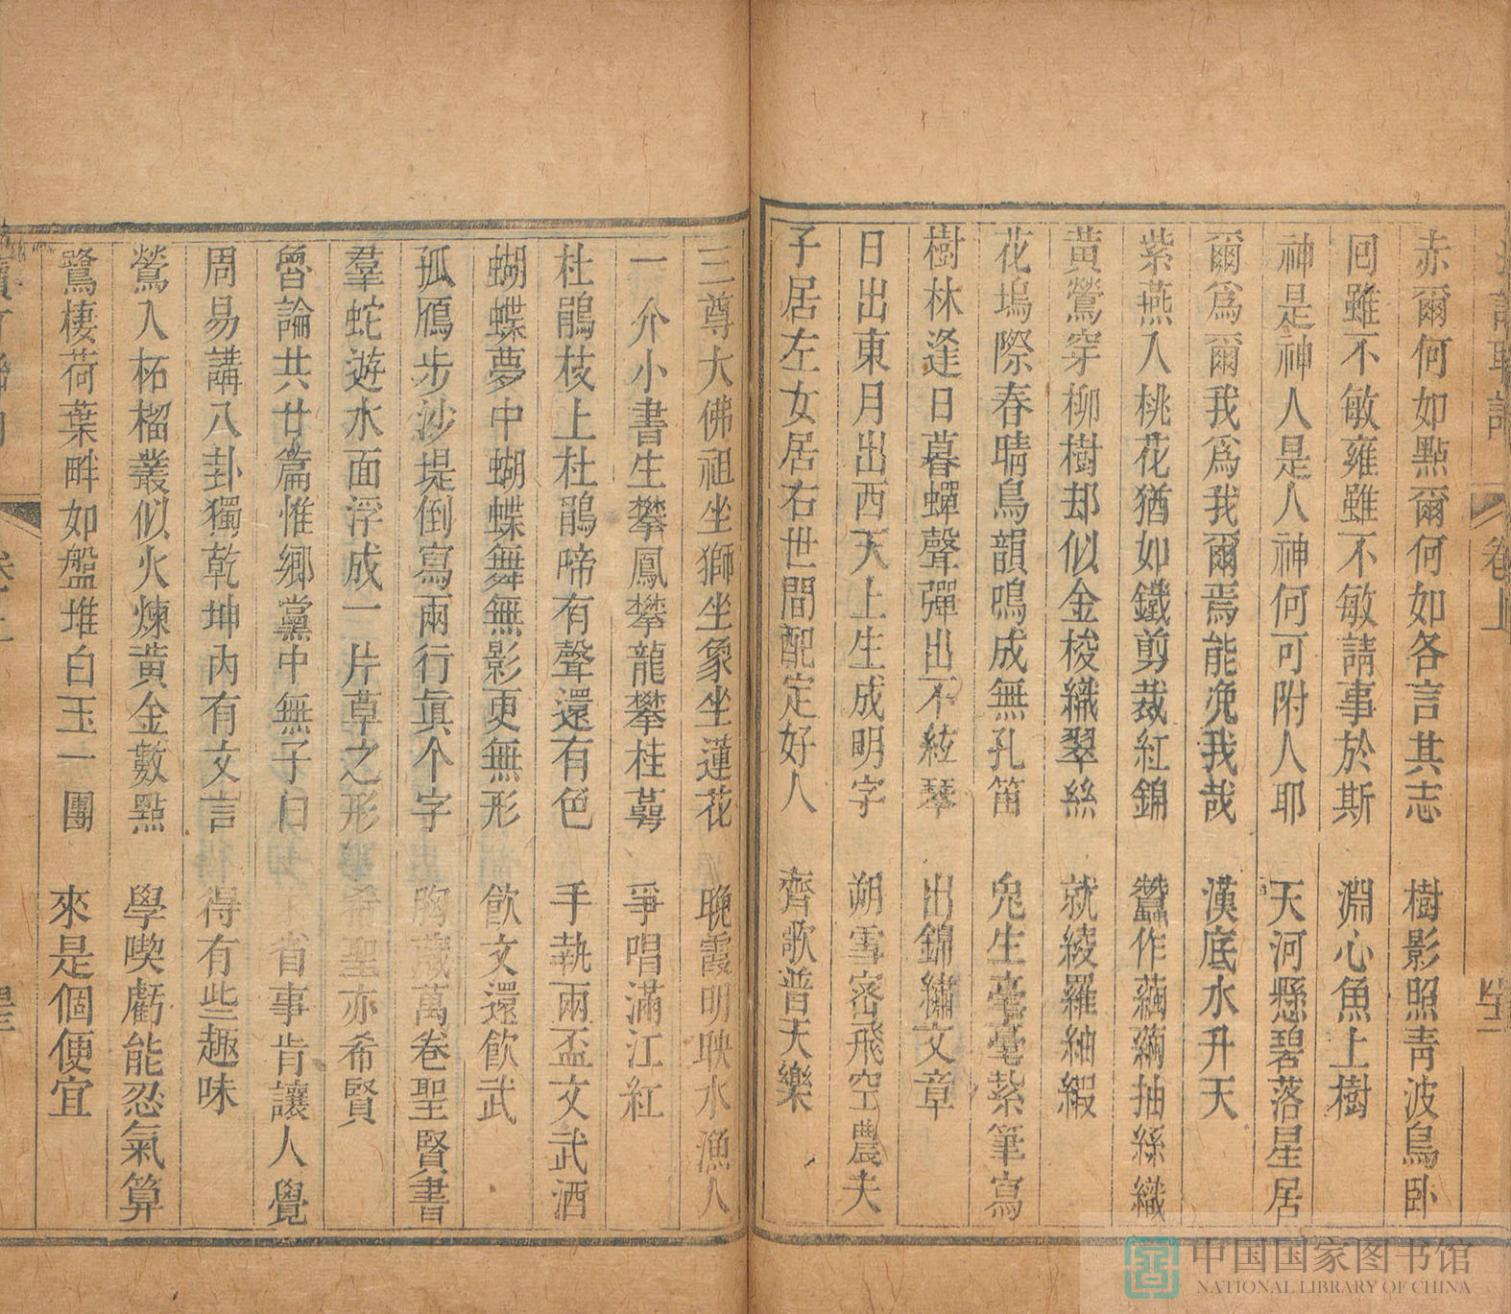 赤爾何如點爾何如各言其志　樹影照靑波鳥卧
回雖不敏雍雖不敏請事於斯　淵心魚上樹
神是神人是人神何可附人耶　天河懸碧落星居
爾爲爾我爲我爾焉能浼我哉　漢底水升天
紫燕入桃花猶如鐵剪裁紅錦　蠶作繭繭抽絲織
黃鶯穿柳樹却似金梭織翠絲　就綾羅紬緞
花塢際春晴鳥韻鳴成無孔笛　兔生毫毫紮筆寫
樹林逢日暮蟬聲彈出不絃琴　出錦繡文章
日出東月出西天上生成明字　朔雪密飛空農夫
子居左女居右世間配定好人　齊歌普天樂
三尊大佛祖坐獅坐象坐蓮花　晚霞明映水漁人
一介小書生攀鳳攀龍攀桂蕚　爭唱滿江紅
杜鵑枝上杜鵑啼有聲還有色　手執兩盃文武酒
蝴蝶夢中蝴蝶舞無影更無形　飮文還飮武
孤鴈步沙堤倒寫兩行眞个字　胸藏萬卷聖賢書
羣蛇遊水面浮成一片草之形　希聖亦希賢
魯論共廿篇惟鄉黨中無子曰　省事肯讓人覺
周易講八卦獨乾坤內有文言　得有些趣味
鶯入柘榴叢似火煉黃金數點　學喫虧能忍氣算
鷺棲荷葉畔如盤堆白玉一團　來是個便宜
卷上
中国国家图书馆
NATIONAL LIBRARY OF CHINA